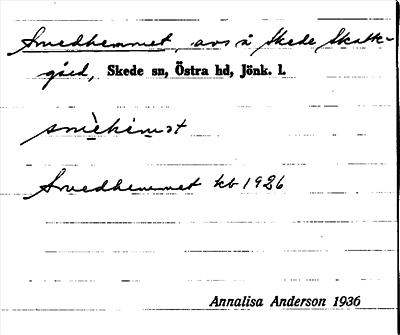 Smedhemmet, avs å Skede Skatte-
gård, Skede sn, Östra hd, Jönk. l.
smèhèmət
Smedhemmet kb 1926
Annalisa Anderson 1936